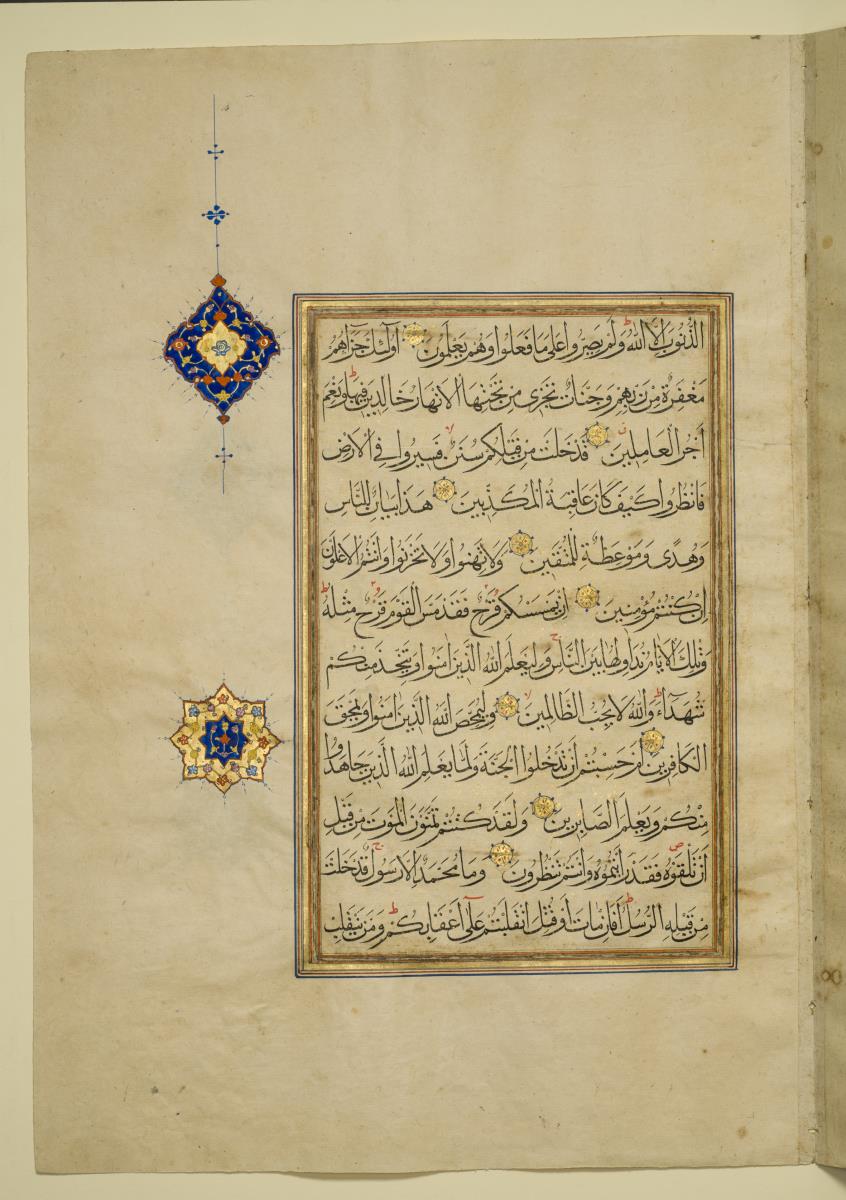 الذُّنُوبَ إِلَّا اللّٰهُ وَلَمْ يُصِرُّوا عَلٰى مَا فَعَلُوا وَهُمْ يَعْلَمُونَ اُولٰٓئِكَ جَزَآؤُهُمْ
مَغْفِرَةٌ مِنْ رَبِّهِمْ وَجَنَّاتٌ تَجْرِى مِنْ تَحْتِهَا الْاَنْهَارُ خَالِدِينَ فِيهَا وَنِعْمَ
اَجْرُ الْعَامِلِينَ قَدْ خَلَتْ مِنْ قَبْلِكُمْ سُنَنٌ فَسِيرُوا فِى الْاَرْضِ
فَانْظُرُوا كَيْفَ كَانَ عَاقِبَةُ الْمُكَذِّبِينَ هٰذَا بَيَانٌ لِلنَّاسِ
وَهُدًى وَمَوْعِظَةٌ لِلْمُتَّقِينَ وَلَا تَهِنُوا وَلَا تَحْزَنُوا وَاَنْتُمُ الْاَعْلَوْنَ
اِنْ كُنْتُمْ مُؤْمِنِينَ اِنْ يَمْسَسْكُمْ قَرْحٌ فَقَدْ مَسَّ الْقَوْمَ قَرْحٌ مِثْلُهُ
وَتِلْكَ الْاَيَّامُ نُدَاوِلُهَا بَيْنَ النَّاسِ وَلِيَعْلَمَ اللّٰهُ الَّذِينَ اٰمَنُوا وَيَتَّخِذَ مِنْكُمْ
شُهَدَآءَ وَاللّٰهُ لَا يُحِبُّ الظَّالِمِينَ وَلِيُمَحِّصَ اللّٰهُ الَّذِينَ اٰمَنُوا وَيَمْحَقَ
الْكَافِرِينَ اَمْ حَسِبْتُمْ اَنْ تَدْخُلُوا الْجَنَّةَ وَلَمَّا يَعْلَمِ اللّٰهُ الَّذِينَ جَاهَدُوا
مِنْكُمْ وَيَعْلَمَ الصَّابِرِينَ وَلَقَدْ كُنْتُمْ تَمَنَّوْنَ الْمَوْتَ مِنْ قَبْلِ
اَنْ تَلْقَوْهُ فَقَدْ رَاَيْتُمُوهُ وَاَنْتُمْ تَنْظُرُونَ وَمَا مُحَمَّدٌ اِلَّا رَسُولٌ قَدْ خَلَتْ
مِنْ قَبْلِهِ الرُّسُلُ اَفَاِنْ مَاتَ اَوْ قُتِلَ انْقَلَبْتُمْ عَلٰٓى اَعْقَابِكُمْ وَمَنْ يَنْقَلِبْ